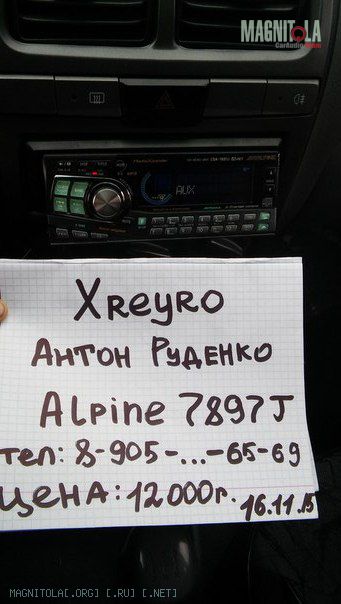 MAGNITOLA
CarAudio.com
AUX
Xreyro
Антон Руденко
Alpine 7897J
тел: 8-905-...-65-69
цена: 12000г.
16.11.15
MAGNITOLA[.ORG] [.RU] [.NET]